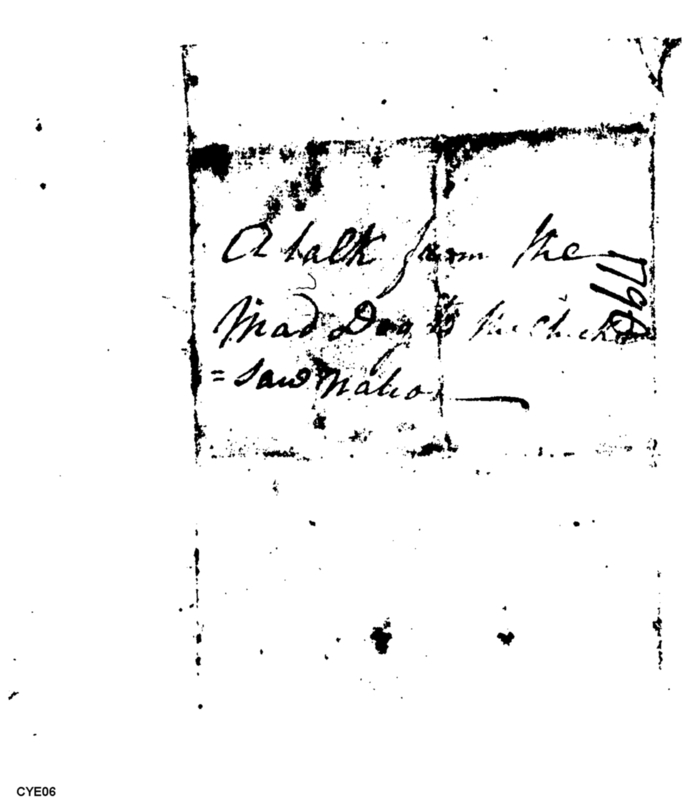 A talk from the
Mad Dog to the Chicka
= saw Nation
1796
CYE06